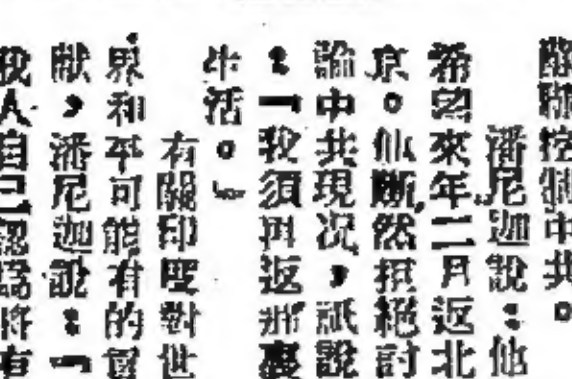 蘇聯控制中共。
潘尼迦說：他
希望來年二月返北
京。他斷然拒絕討
論中共現況，祇說
：「我須再返那裏
生活。」
有關印度對世
界和平可能有的貢
献，潘尼迦說：「
我人自己認為將有